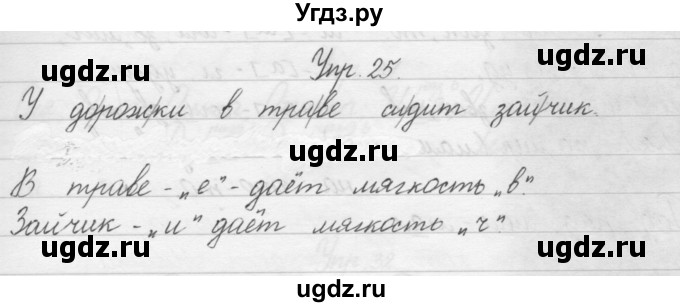 Угдз.ру
ugdz.ru ugdz.ru
Упр. 25.
У до/рож/ки в тра/ве си/дит зай/чик.
ugdz.ru
ugdz.ru
В траве - „е" - даёт мягкость „в".
Зайчик - „и" даёт мягкость „ч"
ugdz.ru ugdz.ru
ugdz.ru